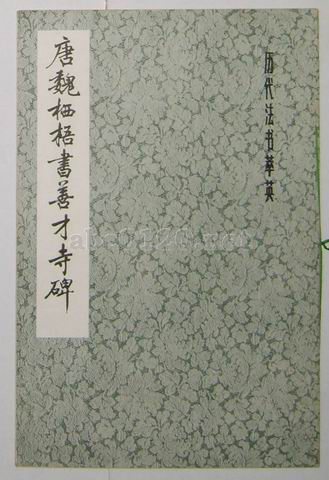 历代法书萃英
唐魏栖梧书善才寺碑